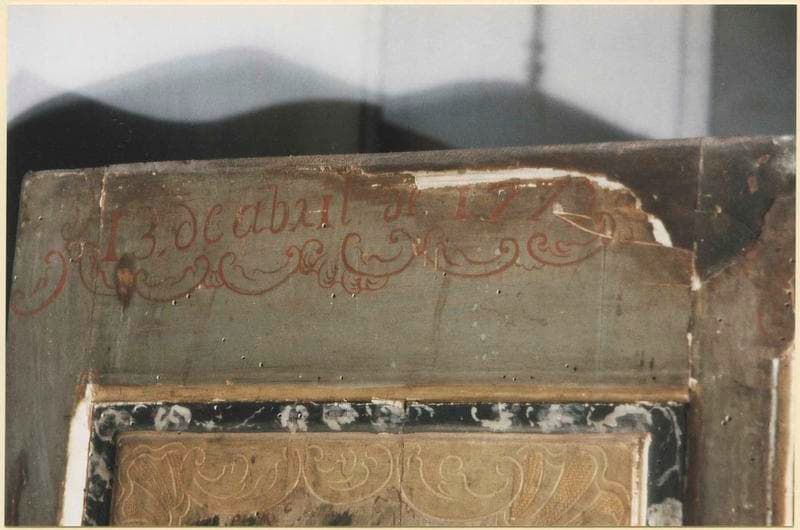 13, de abril de 177